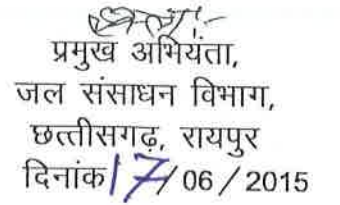 प्रमुख अभियंता,
जल संसाधन विभाग,
छत्तीसगढ़, रायपुर
दिनांक 17/06/2015